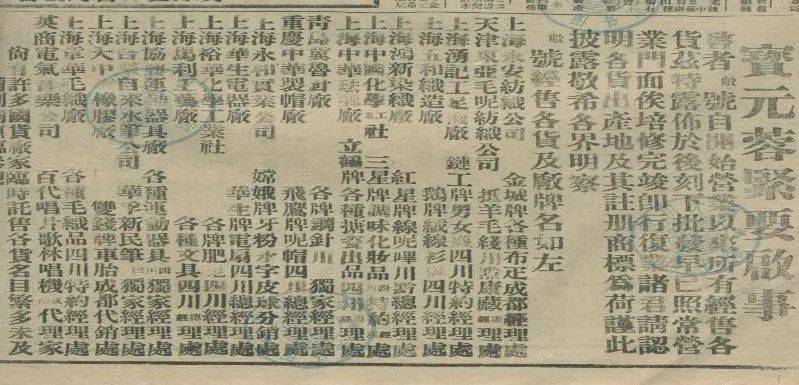 寶元蓉緊要啟事
啓者敝號自開始營業以來所有經售各
貨茲特露佈於後刻下批發早已照常營
業門面俟培修完竣卽行復業諸君請認
明各貨出產地及其註册商標爲荷謹此
披露敬希各界明察
敝號經售各貨及廠牌名如左
上海永安紡織公司 金城牌各種布疋成都經理處
天津東亞毛呢紡織公司 抵羊毛綫川黔康藏經理處
上海湧記工足襪廠 鏈工牌男女襪四川特約經理處
上海五和織造廠 鵝牌絨線衫四川經理處
上海鴻新染織廠 紅星牌線呢嗶川黔總經理處
上海中國化學工業社 三星牌調味化妝品四川特約經理處
上海中華琺瑯廠 立鶴牌各種搪瓷出品四川經理處
青島冀魯針廠 各牌鋼針川獨家經理處
重慶中華製帽廠 飛鷹牌呢帽四川總經理處
上海永和實業公司 嫦娥牌牙粉永字皮球分銷處
上海華生電器廠 華生牌電扇四川總經理處
上海裕華化學工業社 各牌肥皂四川經理處
上海馬利工藝廠 各種文具四川經理處
上海協和運動器具廠 各種運動器具川獨家經理處
上海合自來水筆公司 華孚新民筆獨家經理處
上海大中橡膠廠 雙錢牌車胎成都代銷處
上海章華毛織廠 各種毛織品四川特約經理處
英商電氣音樂公司 百代唱片歌林唱機代理家
尚有許多國貨廠家臨時託售各貨名目繁多未及